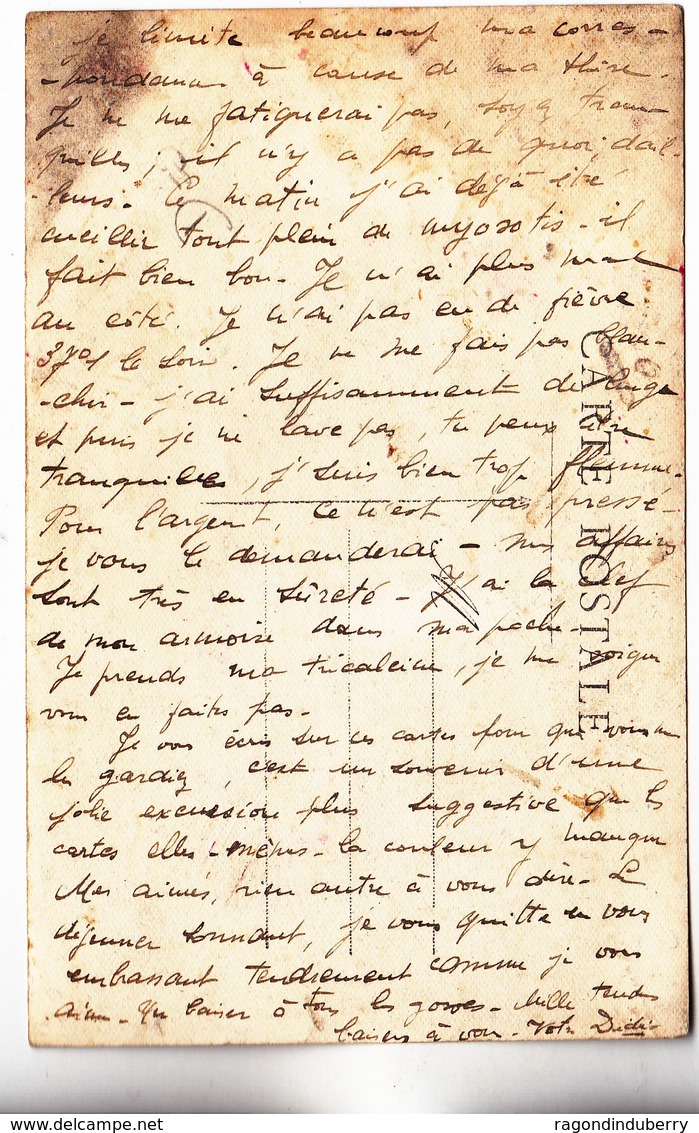 je limite beaucoup ma corres-
-pondance à cause de ma thèse.
Je ne me fatiguerai pas, soyez tran-
quilles, il n'y a pas de quoi, d'ail-
-leurs. Ce matin j'ai déjà été
cueillir tout plein de myosotis - il
fait bien bon. Je n'ai plus mal
au côté. Je n'ai pas eu de fièvre
le soir. Je ne me fais pas blan-
-chir - j'ai suffisamment de linge
et puis je ne lave pas, tu peux être
tranquille, j'suis bien trop flemme.
Pour l'argent, ce n'est pas pressé -
je vous le demanderai - mes affaires
sont très en sûreté - j'ai la clef
de mon armoire dans ma poche -
Je prends ma tricalcine, je me soigne
vous en faites pas -
Je vous écris sur ces cartes pour que vous me
les gardiez, c'est un souvenir d'une
jolie excursion plus suggestive que les
cartes elles-mêmes - la couleur y manque
Mes aimés, rien autre à vous dire - Le
déjeuner sonnant, je vous quitte en vous
embrassant tendrement comme je vous
aime - Un baiser à tous les gosses - Mille tendres
baisers à vous. Votre Didi
CARTE POSTALE
delcampe.net
ragondinduberry